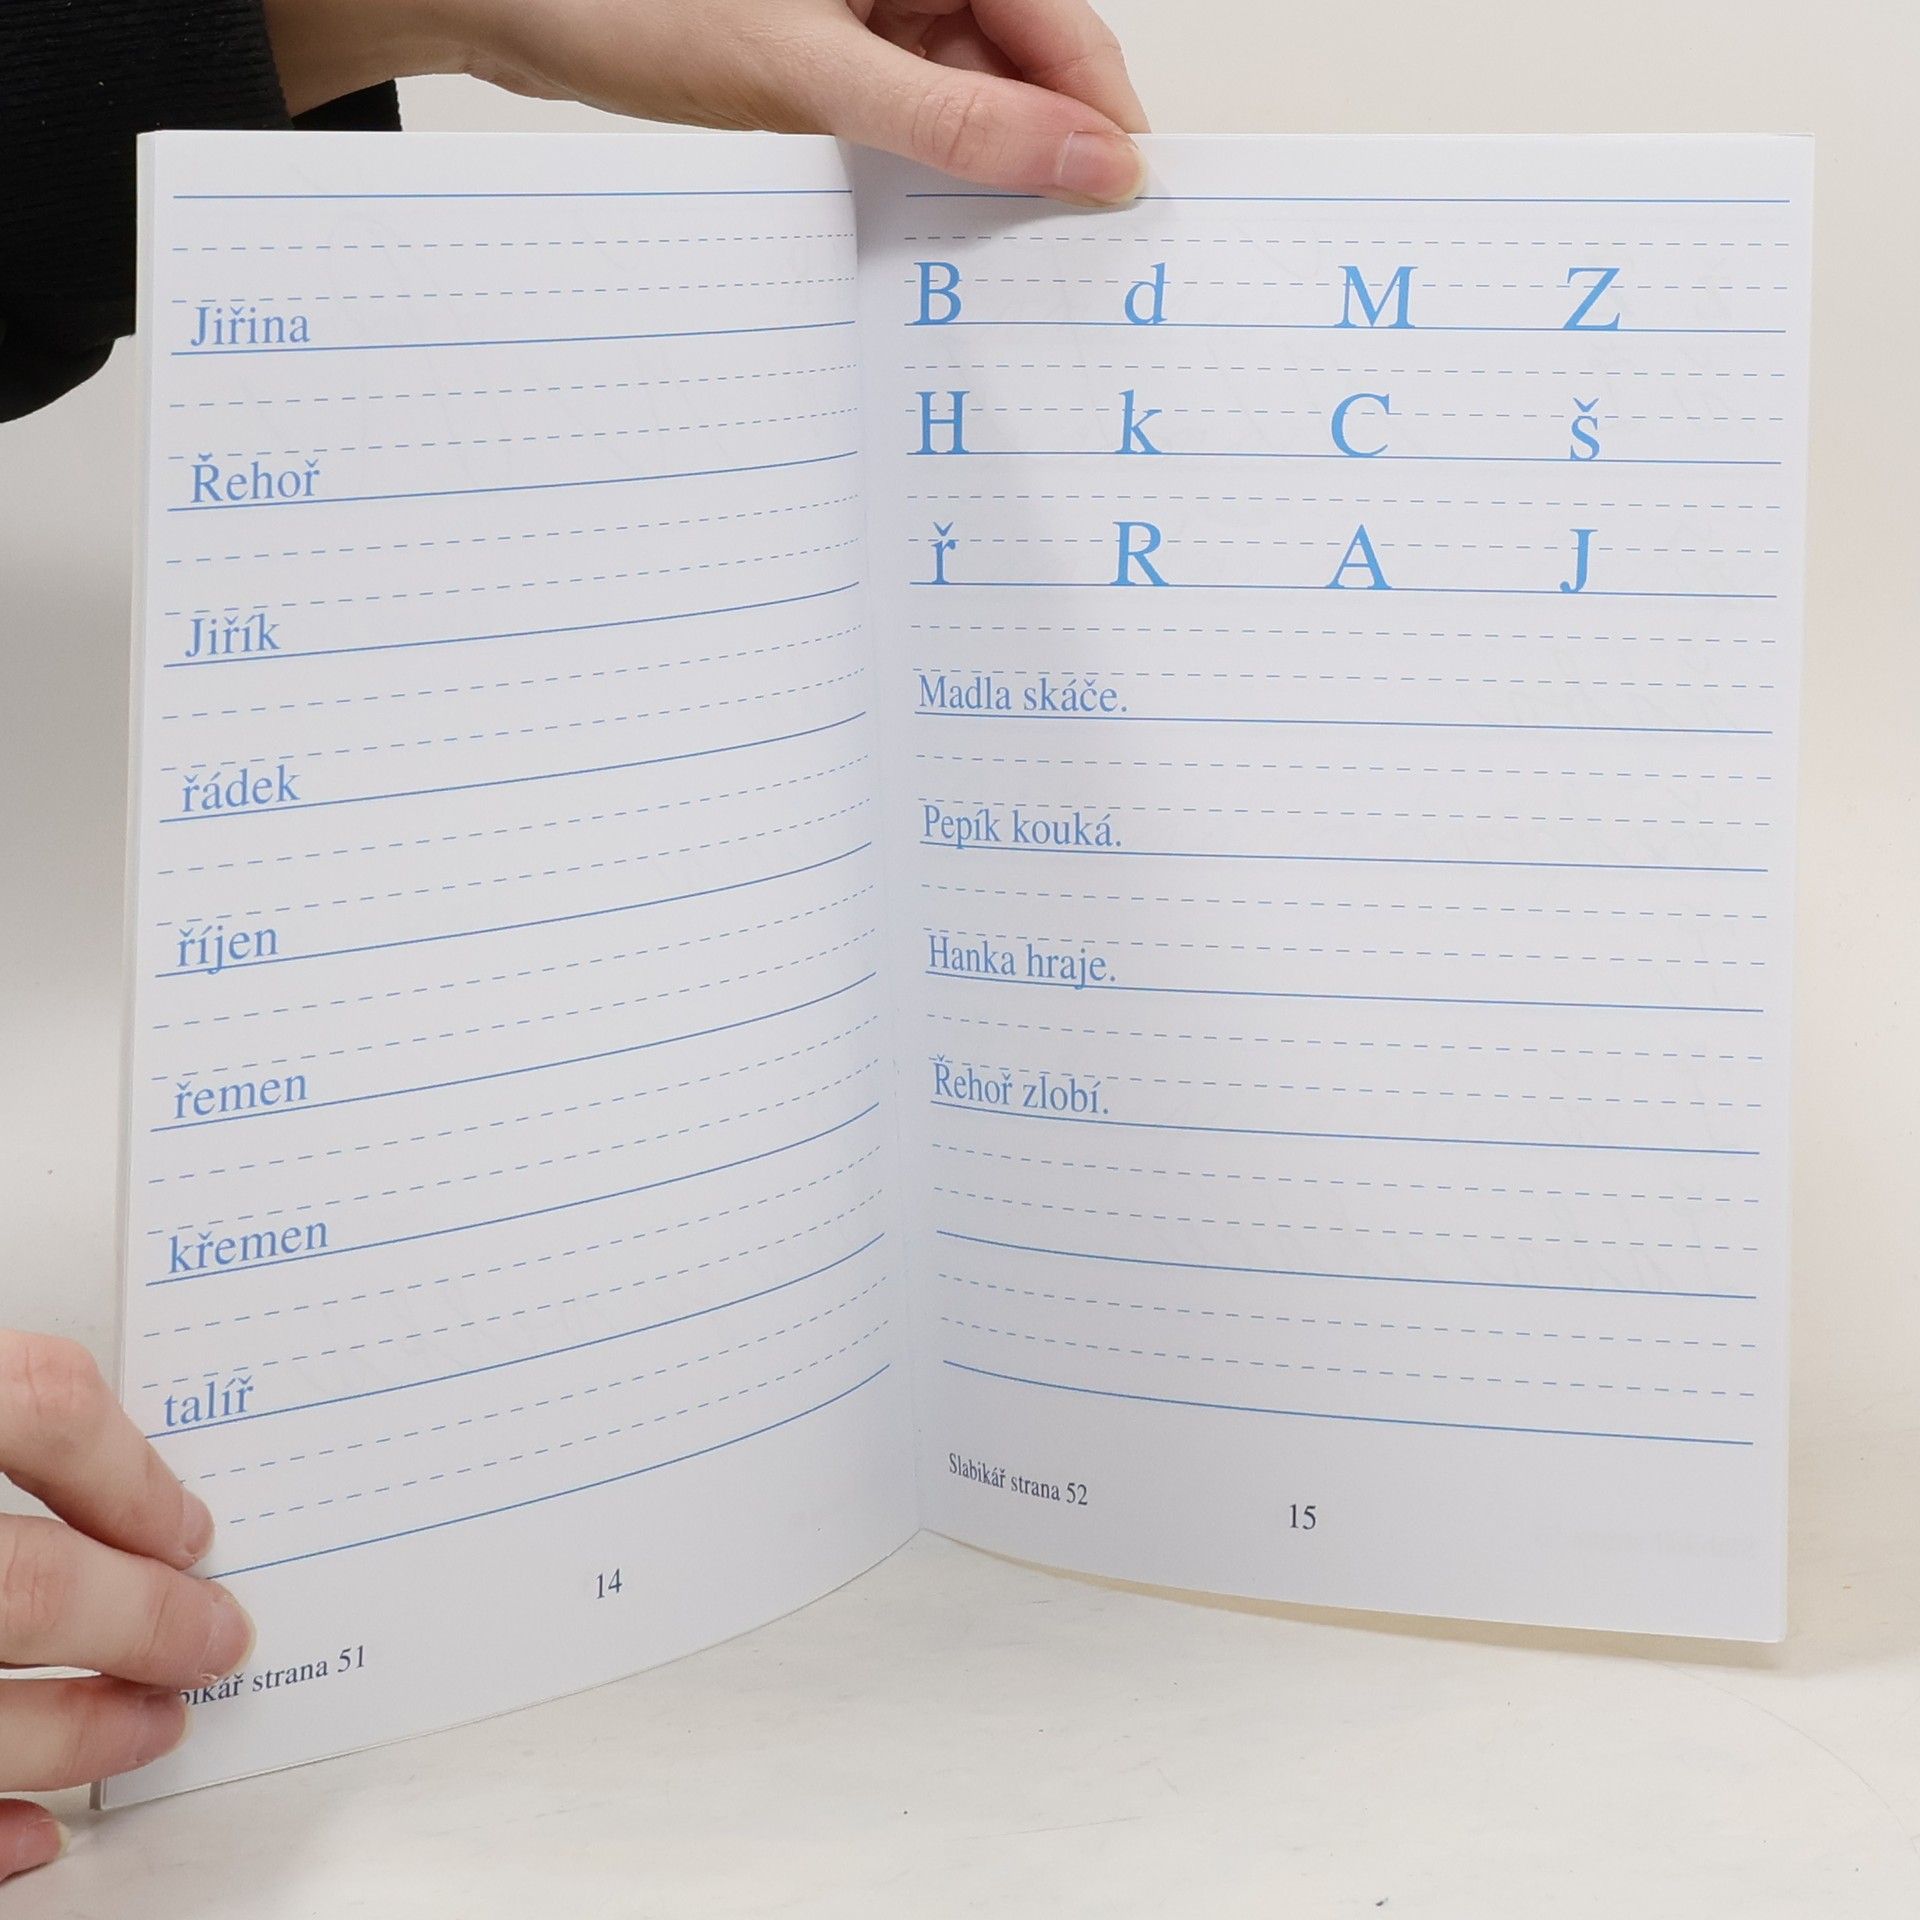 Jiřina
Řehoř
Jiřík
řádek
říjen
řemen
křemen
talíř
14
strana 51
B d M Z
H k C š
ř R A J
Madla skáče.
Pepík kouká.
Hanka hraje.
Řehoř zlobí.
Slabikář strana 52
15